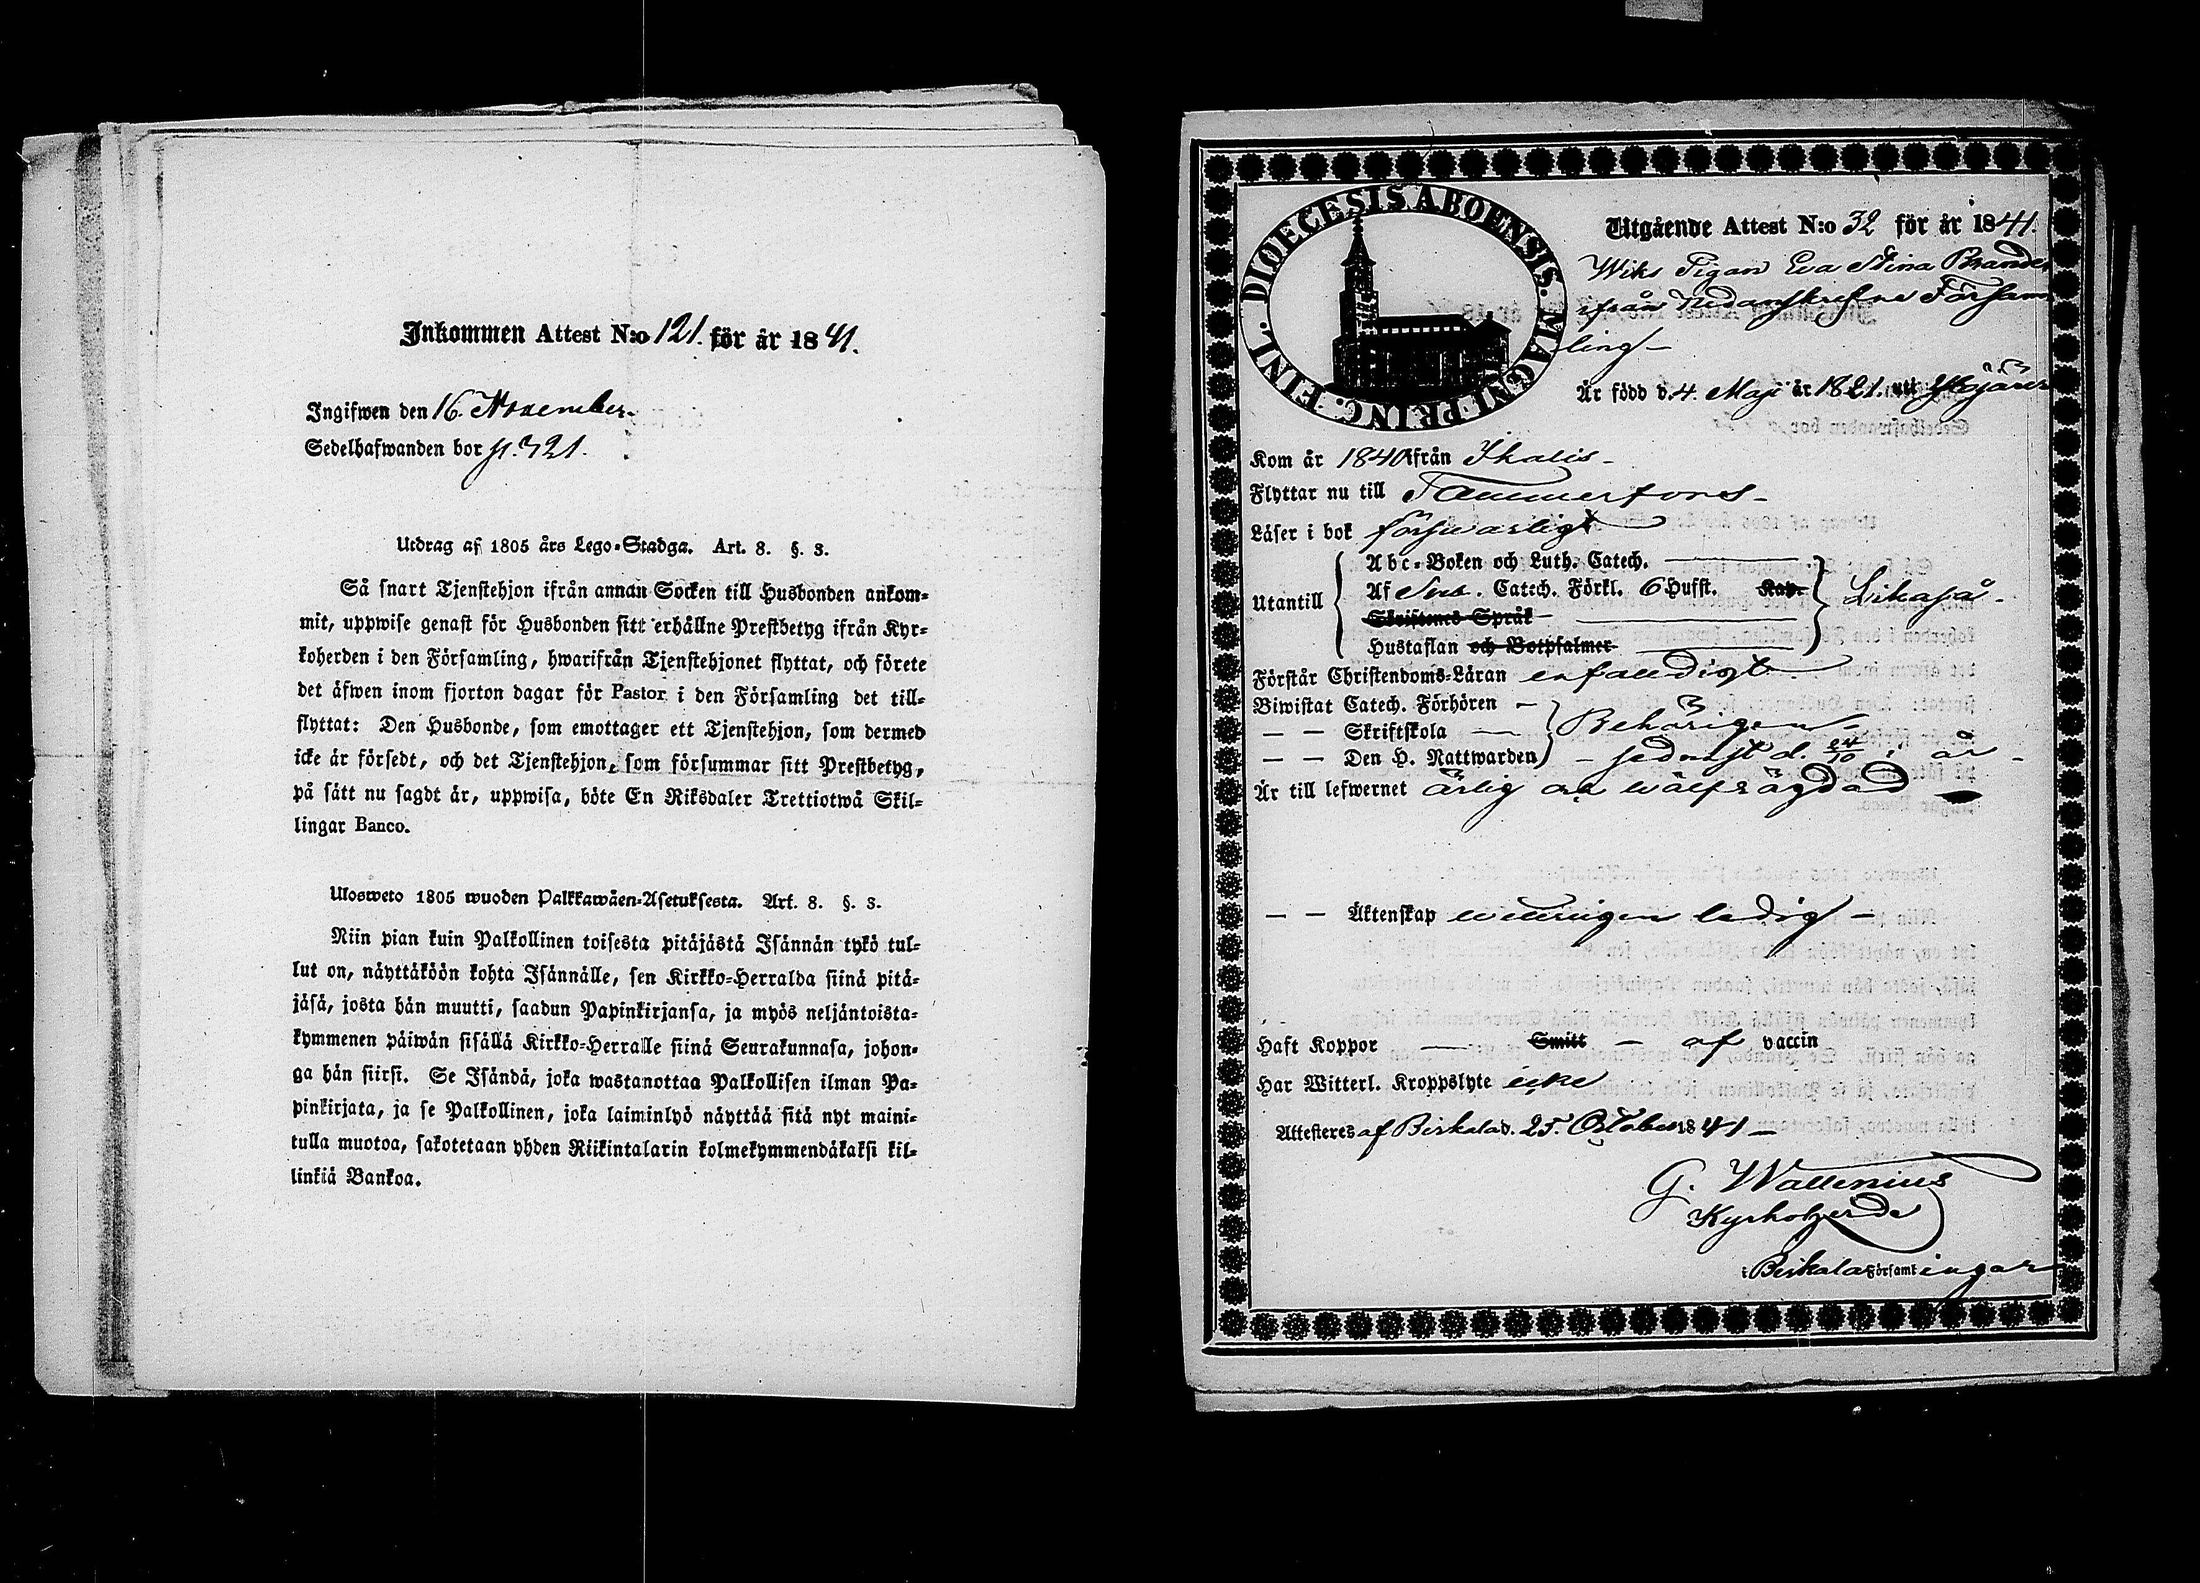 Inkommen Attest N:o 121. för år 1841.
Ingifwen den 16. November.
Sedelhafwanden bor p. 321.
Utdrag af 1805 års Lego-Stadga. Art. 8. §. 3.
Så snart Tjenstehjon ifrån annan Socken till Husbonden ankom-
mit, uppwise genast för Husbonden sitt erhållne Prestbetyg ifrån Kyr-
koherden i den Församling, hwarifrån Tjenstehjonet flyttat, och förete
det äfwen inom fjorton dagar för Pastor i den Församling det till-
flyttat: Den Husbonde, som emottager ett Tjenstehjon, som dermed
icke är försedt, och det Tjenstehjon, som försummar sitt Prestbetyg,
på sätt nu sagdt är, uppwisa, böte En Riksdaler Trettiotwå Skil-
lingar Banco.
Ulosweto 1805 wuoden Palkkawäen-Asetuksesta. Art. 8. §. 3.
Niin pian kuin Palkollinen toisesta pitäjästä Isännän tykö tul-
lut on, näyttäköön kohta Isännälle, sen Kirkko-Herralda siinä pitä-
jäsä, josta hän muutti, saadun Papinkirjansa, ja myös neljäntoista-
kymmenen päiwän sisällä Kirkko-Herralle siinä Seurakunnasa, johon-
ga hän siirsi. Se Isändä, joka wastanottaa Palkollisen ilman Pa-
pinkirjata, ja se Palkollinen, joka laiminlyö näyttää sitä nyt maini-
tulla muotoa, sakotetaan yhden Riikintalarin kolmekymmendäkaksi kil-
linkiä Bankoa.
DIOECESIS ABOENSIS. MAGNI PRINC. FINL.
Utgående Attest N:o 32 för år 1841.
Wiks Pigan Eva Stina Brander
från nedanskrefne Försam
ling -
Är född d. 4. Maji år 1821. uti
Kom år 1840 ifrån Ikalis -
Flyttar nu till Tammerfors -
Läser i bok förswarligt
Utantill
Abc-Boken och Luth. Catech.
Af Sve. Catech. Förkl. 6 Hufst. Kap. Likaså -
Skriftenes Språk
Hustaflan och Botpsalmer
Förstår Christendoms-Läran enfaldigt
Biwistat Catech. Förhören -
- - Skriftskola - Behörigen -
- - Den H. Nattwarden - sednast d. 24/10 i år -
Är till lefwernet ärlig och wälfrägdad
- - Äktenskap wetterligen ledig -
Haft Koppor - Smitt - af vaccin
Har Witterl. Kroppslyte icke
Attesteres af Birkala d. 25. October 1841 -
G. Wallenius
Kyrkoherde
i Birkala Församlingar